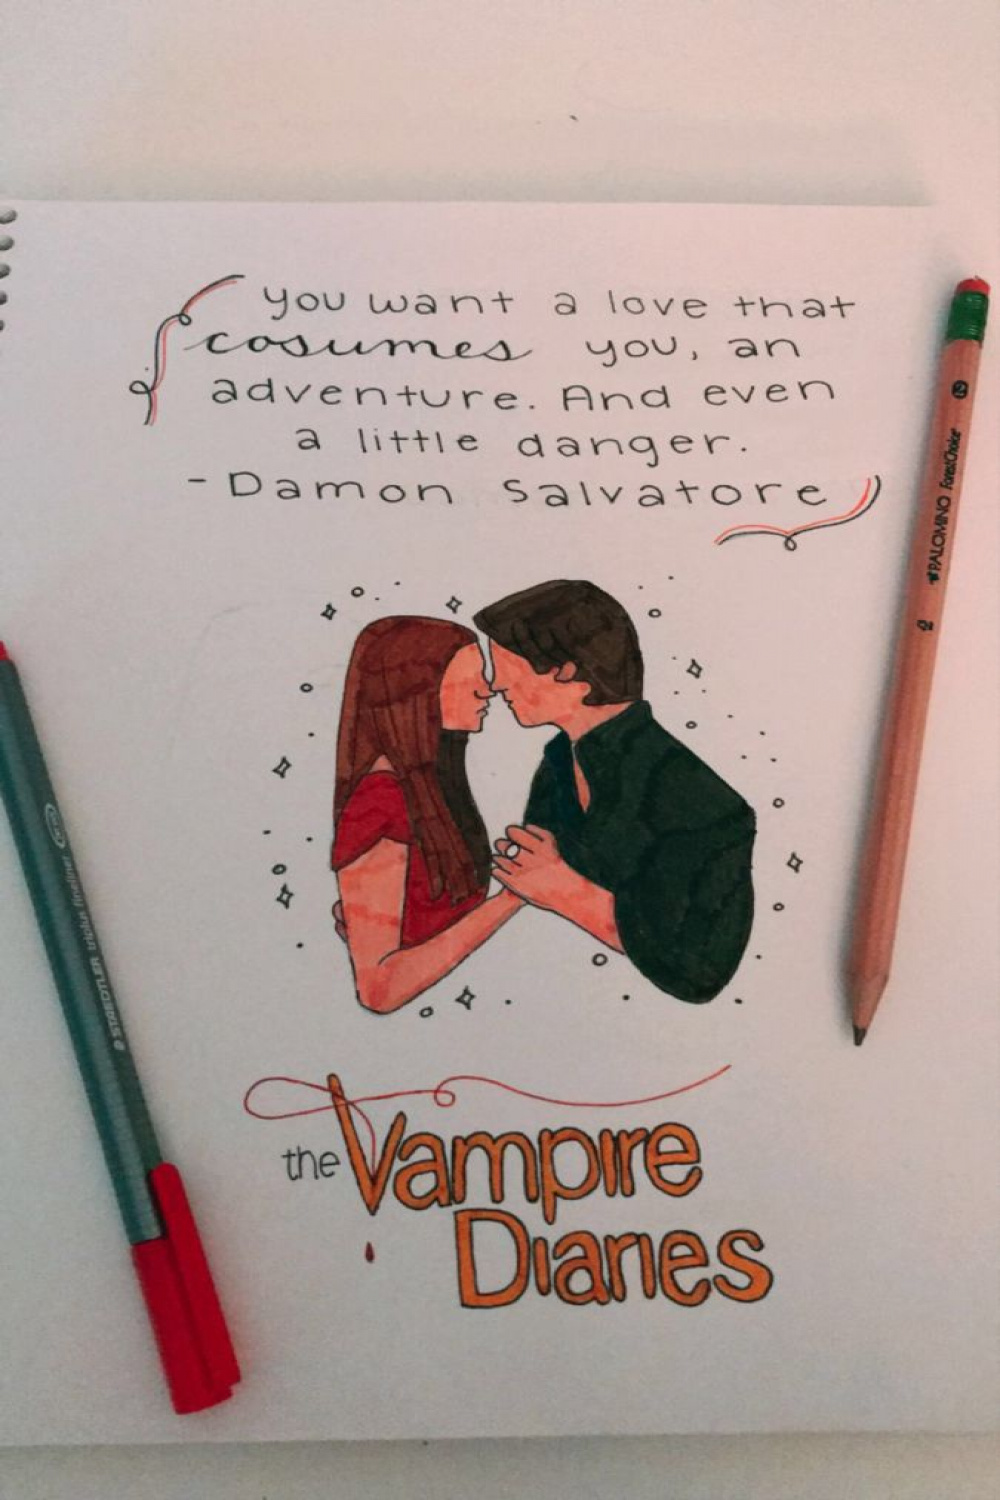 you want a love that
cosumes you, an
adventure. And even
a little danger.
- Damon Salvatore
PALOMINO ForestChoice
2
STAEDTLER triplus fineliner
the Vampire
Diaries